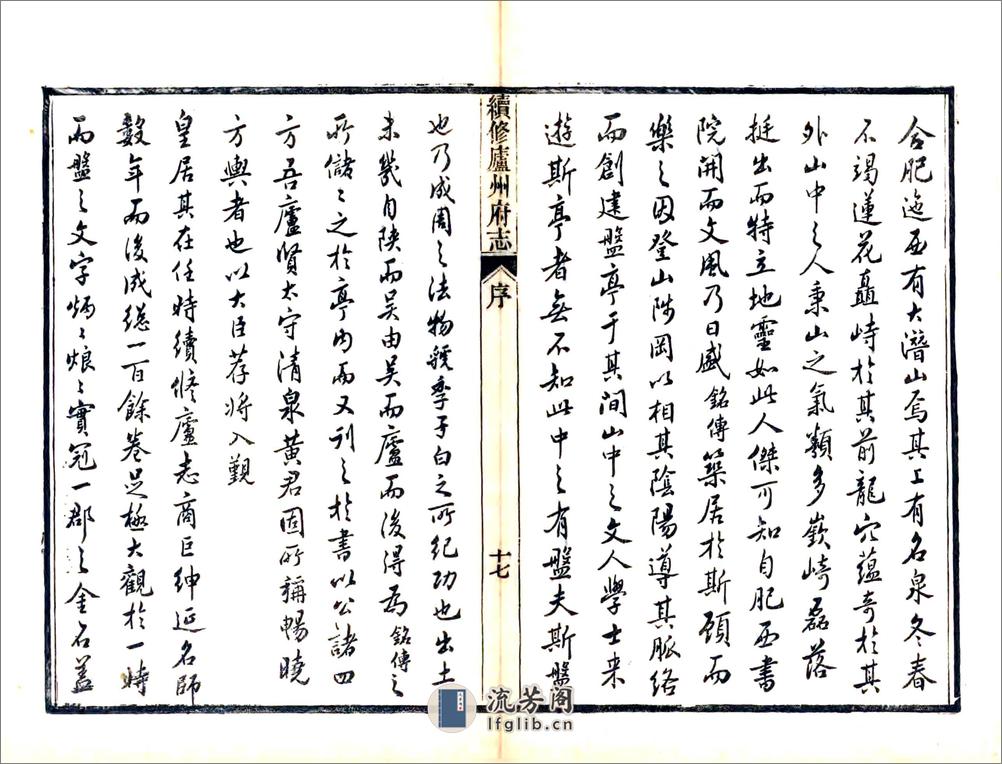 合肥迤西有大潛山焉其上有名泉冬春
不竭蓮花矗峙於其前龍穴蘊奇於其
外山中之人秉山之氣類多嶔崎磊落
挺出而特立地靈如此人傑可知自肥西書
院開而文風乃日盛銘傳築居於斯顧而
樂之因登山陟岡以相其陰陽導其脈絡
而創建盤亭于其間山中之文人學士來
遊斯亭者無不知此中之有盤夫斯盤
續修廬州府志
序
十七
也乃成周之法物虢季子白之所紀功也出土
未幾自陝而吳由吳而廬而後得爲銘傳之
所儲之於亭內而又刊之於書以公諸四
方吾廬賢太守清泉黃君固所稱暢曉
方輿者也以大臣荐將入覲
皇居其在任時續修廬志商巨紳延名師
數年而後成總一百餘卷足極大觀於一時
而盤之文字炳炳烺烺實冠一郡之金石蓋
流芳阁
lfglib.cn